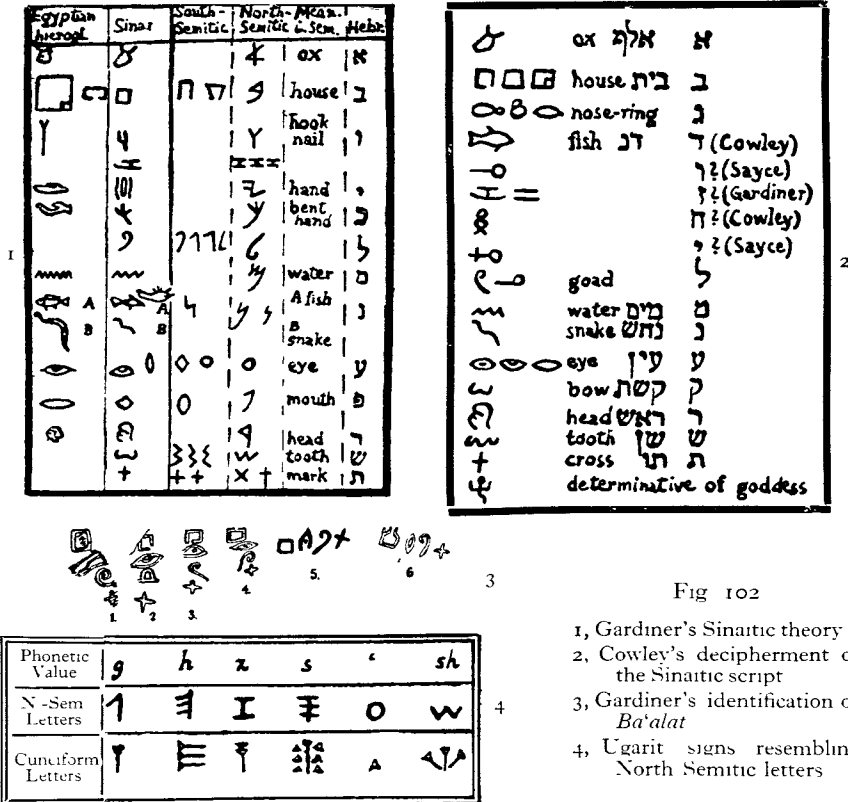 Egyptian hierogl. Sinai South-Semitic North-Semitic Mean. in Sem. Hebr.
ox א
house ב
hook nail ו
hand י
bent hand כ
ל
water מ
A A A fish נ
B B B snake
eye ע
mouth פ
head ר
tooth ש
mark ת
1
ox אלף א
house בית ב
nose-ring ג
fish דג ד (Cowley)
ו ? (Sayce)
ז ? (Gardiner)
ח ? (Cowley)
י ? (Sayce)
goad ל
water מים מ
snake נחש נ
eye עין ע
bow קשת ק
head ראש ר
tooth שן ש
cross תו ת
determinative of goddess
2
1. 2 3. 4. 5. 6
3
Phonetic Value g h z s ‘ sh
N-Sem Letters
Cuneiform Letters
4
Fig 102
1, Gardiner's Sinaitic theory
2, Cowley's decipherment o
the Sinaitic script
3, Gardiner's identification o
Ba‘alat
4, Ugarit signs resemblin
North Semitic letters